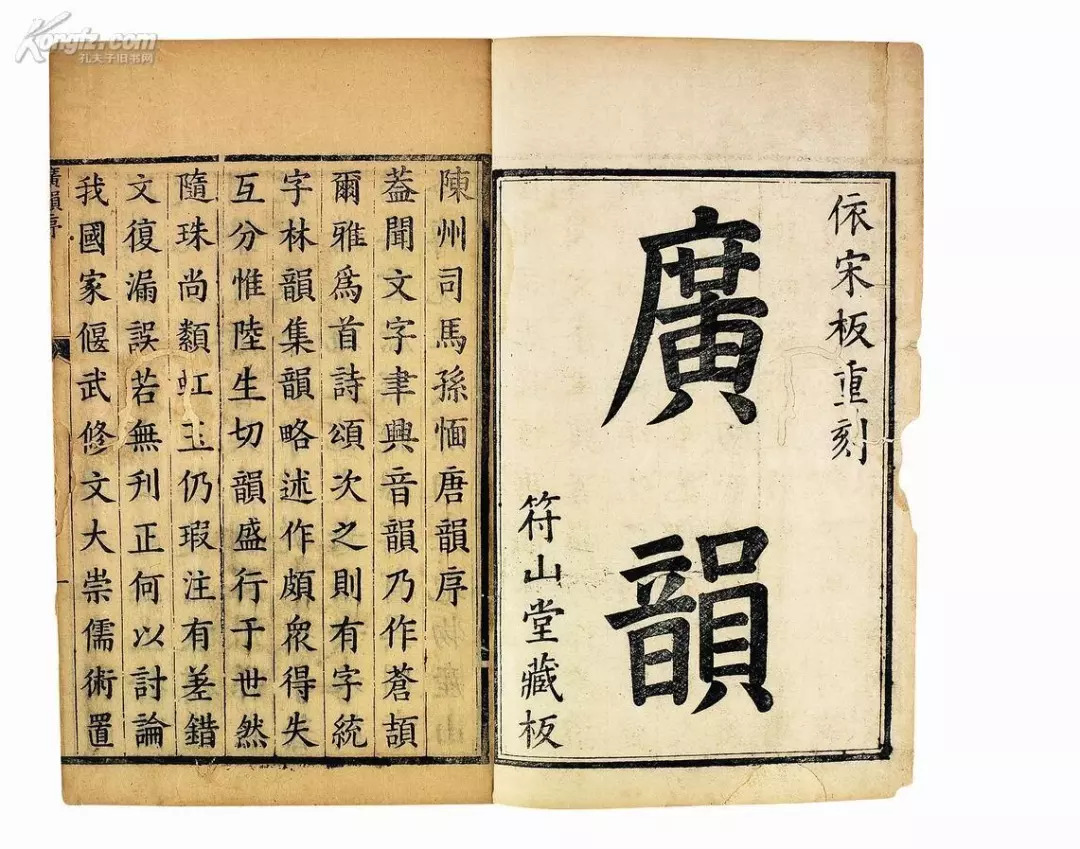 Kongfz.com
孔夫子旧书网
依宋板重刻
廣韻
符山堂藏板
陳州司馬孫愐唐韻序
葢聞文字聿興音韻乃作蒼頡
爾雅爲首詩頌次之則有字統
字林韻集韻略述作頗衆得失
互分惟陸生切韻盛行于世然
隨珠尚纇虹玉仍瑕注有差錯
文復漏誤若無刊正何以討論
我國家偃武修文大崇儒術置
廣韻序
一